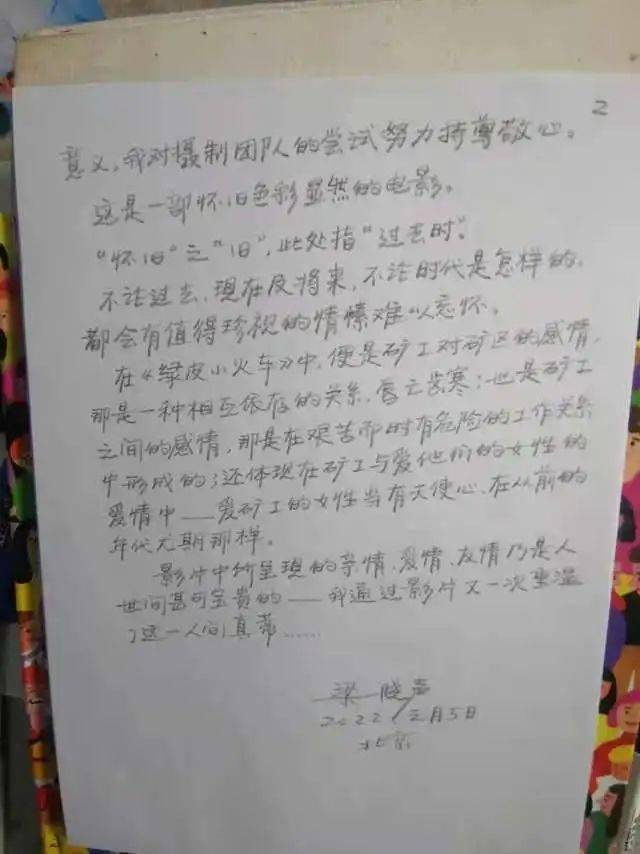 2
意义。我对摄制团队的尝试努力持尊敬心。
这是一部怀旧色彩显然的电影。
“怀旧”之“旧”,此处指“过去时”。
不论过去、现在及将来,不论时代是怎样的,
都会有值得珍视的情愫难以忘怀。
在《绿皮小火车》中,便是矿工对矿区的感情,
那是一种相互依存的关系,唇亡齿寒;也是矿工
之间的感情,那是在艰苦而时有危险的工作关系
中形成的;还体现在矿工与爱他们的女性的
爱情中——爱矿工的女性当有天使心,在从前的
年代尤期那样。
影片中所呈现的亲情、爱情、友情乃是人
世间甚可宝贵的——我通过影片又一次重温
了这一人间真蒂……
梁晓声
2022/2月5日
北京